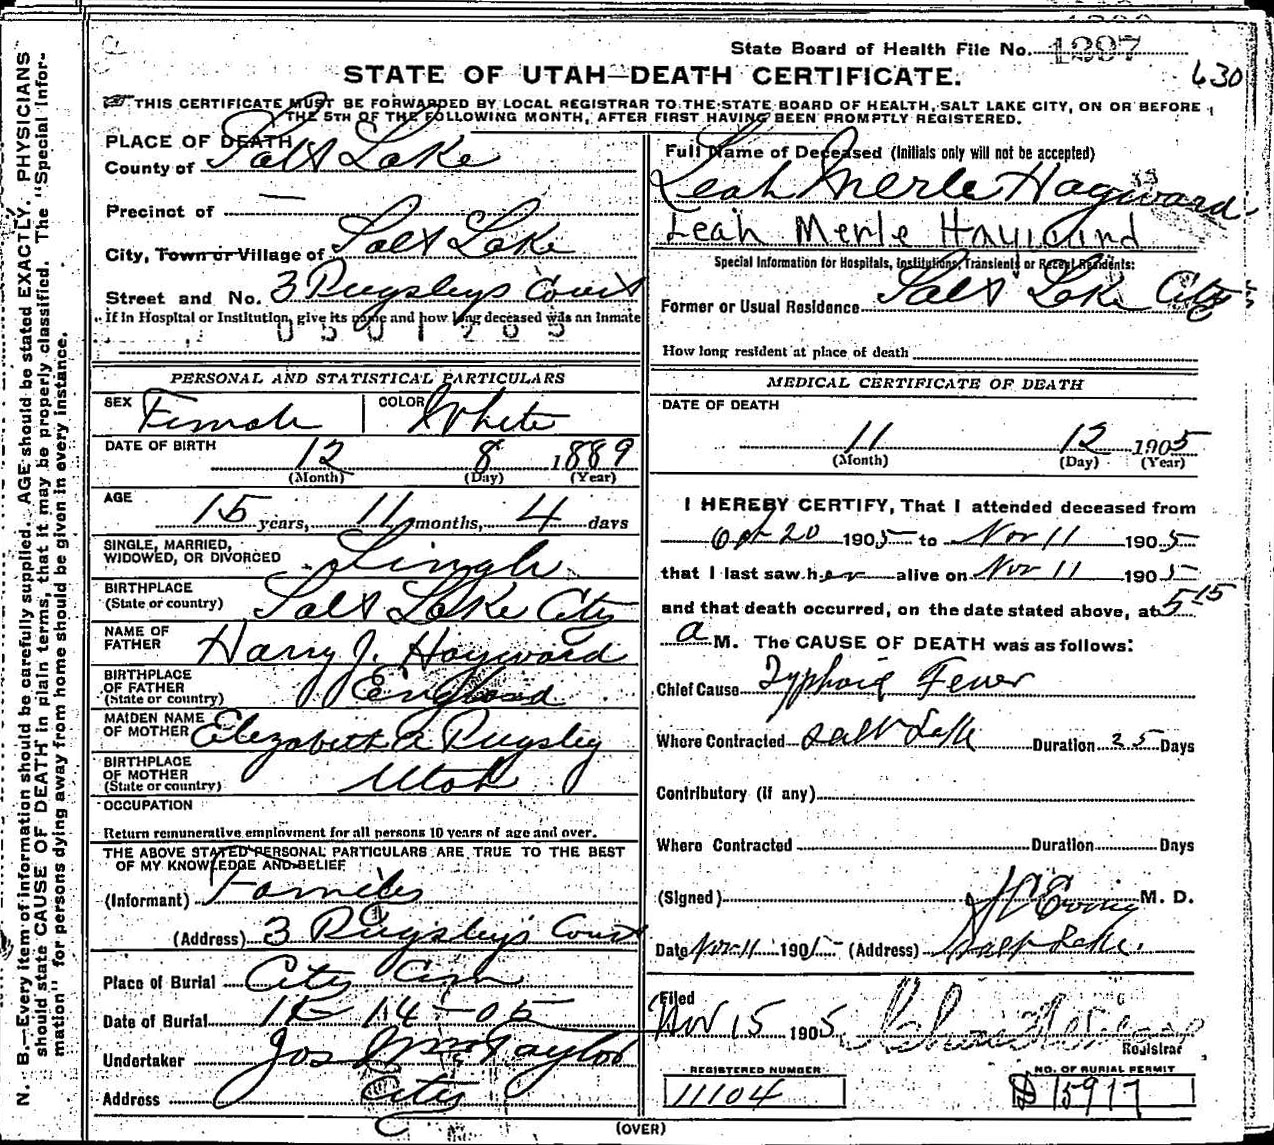 State Board of Health File No. 1297
630
STATE OF UTAH—DEATH CERTIFICATE.
THIS CERTIFICATE MUST BE FORWARDED BY LOCAL REGISTRAR TO THE STATE BOARD OF HEALTH, SALT LAKE CITY, ON OR BEFORE
THE 5TH OF THE FOLLOWING MONTH, AFTER FIRST HAVING BEEN PROMPTLY REGISTERED.
N. B.—Every item of information should be carefully supplied. AGE should be stated EXACTLY. PHYSICIANS
should state CAUSE OF DEATH in plain terms, that it may be properly classified. The "Special Infor-
mation" for persons dying away from home should be given in every instance.
PLACE OF DEATH
County of Salt Lake
Precinct of —
City, Town or Village of Salt Lake
Street and No. 3 Pugsleys Court
If in Hospital or Institution, give its name and how long deceased was an inmate
PERSONAL AND STATISTICAL PARTICULARS
SEX Female COLOR White
DATE OF BIRTH
12 8 1889
(Month) (Day) (Year)
AGE
15 years, 11 months, 4 days
SINGLE, MARRIED,
WIDOWED, OR DIVORCED Single
BIRTHPLACE
(State or country) Salt Lake City
NAME OF
FATHER Harry J. Hayward
BIRTHPLACE
OF FATHER
(State or country) England
MAIDEN NAME
OF MOTHER Elizabeth A Pugsley
BIRTHPLACE
OF MOTHER
(State or country) Utah
OCCUPATION
Return remunerative employment for all persons 10 years of age and over.
THE ABOVE STATED PERSONAL PARTICULARS ARE TRUE TO THE BEST
OF MY KNOWLEDGE AND BELIEF
(Informant) Family
(Address) 3 Pugsley's Court
Place of Burial City Cem
Date of Burial 11-14-05
Undertaker Jos Wm Taylor
Address City
Full Name of Deceased (Initials only will not be accepted)
Leah Merle Hayward
Leah Merle Hayward
Special Information for Hospitals, Institutions, Transients or Recent Residents:
Former or Usual Residence Salt Lake City
How long resident at place of death
MEDICAL CERTIFICATE OF DEATH
DATE OF DEATH
11 12 1905
(Month) (Day) (Year)
I HEREBY CERTIFY, That I attended deceased from
Oct 20 1905 to Nov 11 1905
that I last saw her alive on Nov 11 1905
and that death occurred, on the date stated above, at 5 15
a M. The CAUSE OF DEATH was as follows:
Chief Cause Typhoid Fever
Where Contracted Salt Lake Duration 25 Days
Contributory (if any)
Where Contracted Duration Days
(Signed) Ewing M. D.
Date Nov 11 1905 (Address) Salt Lake.
Filed
Nov 15 1905
Registrar
REGISTERED NUMBER
11104
NO. OF BURIAL PERMIT
15917
(OVER)